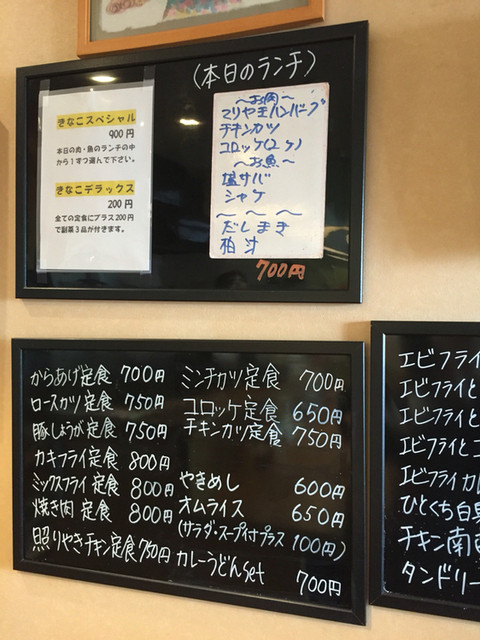 (本日のランチ)
きなこスペシャル
900円
本日の肉・魚のランチの中
から1すつ選んで下さい。
きなこデラックス
200円
全ての定食にプラス200円
で副菜3品が付きます。
〜お肉〜
テリヤキハンバーグ
チキンカツ
コロッケ(2ヶ)
〜お魚〜
塩サバ
シャケ
〜〜〜
だしまき
粕汁
700円
からあげ定食 700円
ロースカツ定食 750円
豚しょうが定食 750円
カキフライ定食 800円
ミックスフライ定食 800円
焼き肉定食 800円
照りやきチキン定食 750円
ミンチカツ定食 700円
コロッケ定食 650円
チキンカツ定食 750円
やきめし 600円
オムライス 650円
(サラダ・スープ付プラス100円)
カレーうどんset 700円
エビフライ
エビフライと
エビフライと
エビフライとコ
エビフライカ
ひとくち白身
チキン南
タンドリー